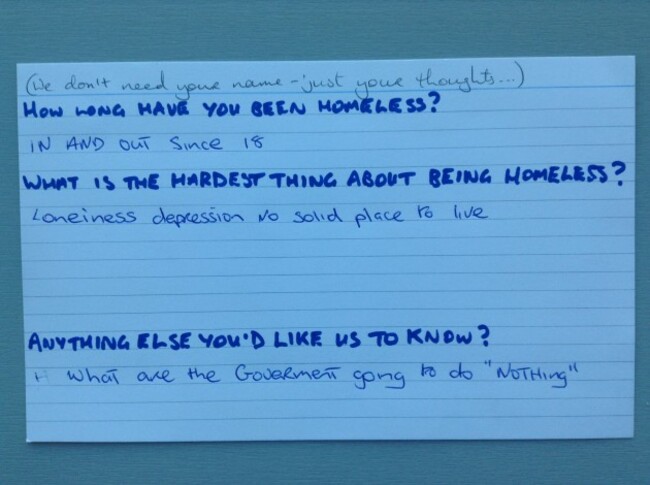 (We don't need your name - just your thoughts...)
HOW LONG HAVE YOU BEEN HOMELESS?
IN AND OUT Since 18
WHAT IS THE HARDEST THING ABOUT BEING HOMELESS?
Loneiness depression No solid place to live
ANYTHING ELSE YOU'D LIKE US TO KNOW?
What are the Goverment going to do "NOTHing"